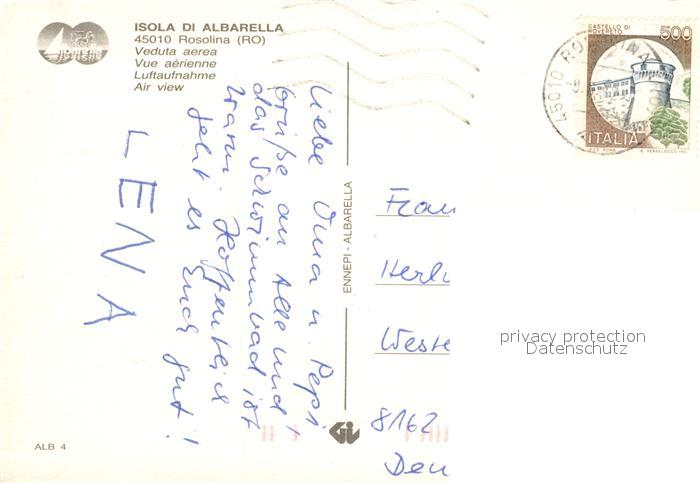 ISOLA DI ALBARELLA
45010 Rosolina (RO)
Veduta aerea
Vue aérienne
Luftaufnahme
Air view
Liebe Oma u. Peps.
Grüße an Alle und
das Schwimmbad ist
warm. Hoffentlich
geht es Euch gut!
LENA
ALB 4
ENNEPI - ALBARELLA
CASTELLO DI
ROVERETO
500
ITALIA
45010
Frau
Herl
Weste
8162
Deu
privacy protection
Datenschutz